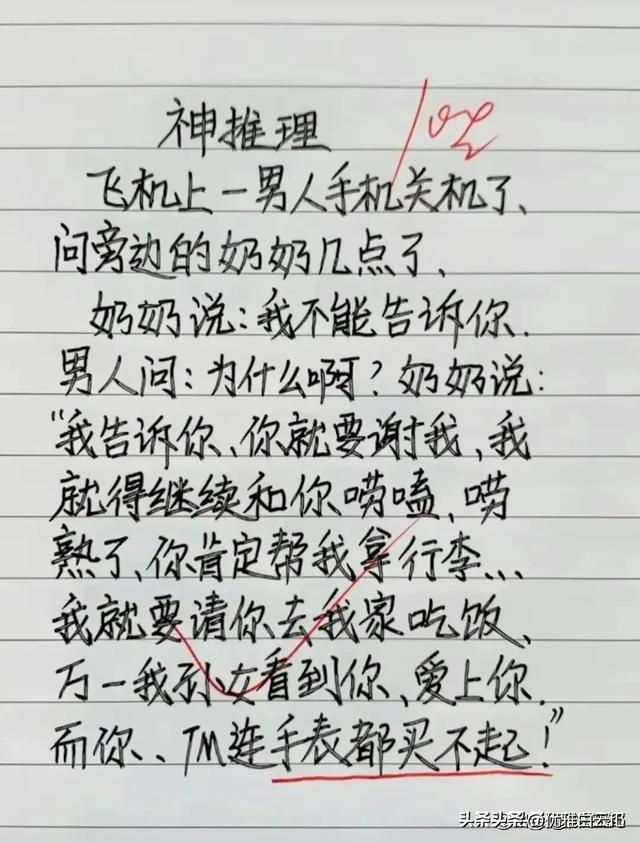 神推理
飞机上一男人手机关机了、
问旁边的奶奶几点了、
奶奶说:我不能告诉你.
男人问:为什么啊?奶奶说:
“我告诉你、你就要谢我,我
就得继续和你唠嗑、唠
熟了、你肯定帮我拿行李...
我就要请你去我家吃饭、
万一我孙女看到你、爱上你.
而你、、TM连手表都买不起!”
头条 @优雅白云邦